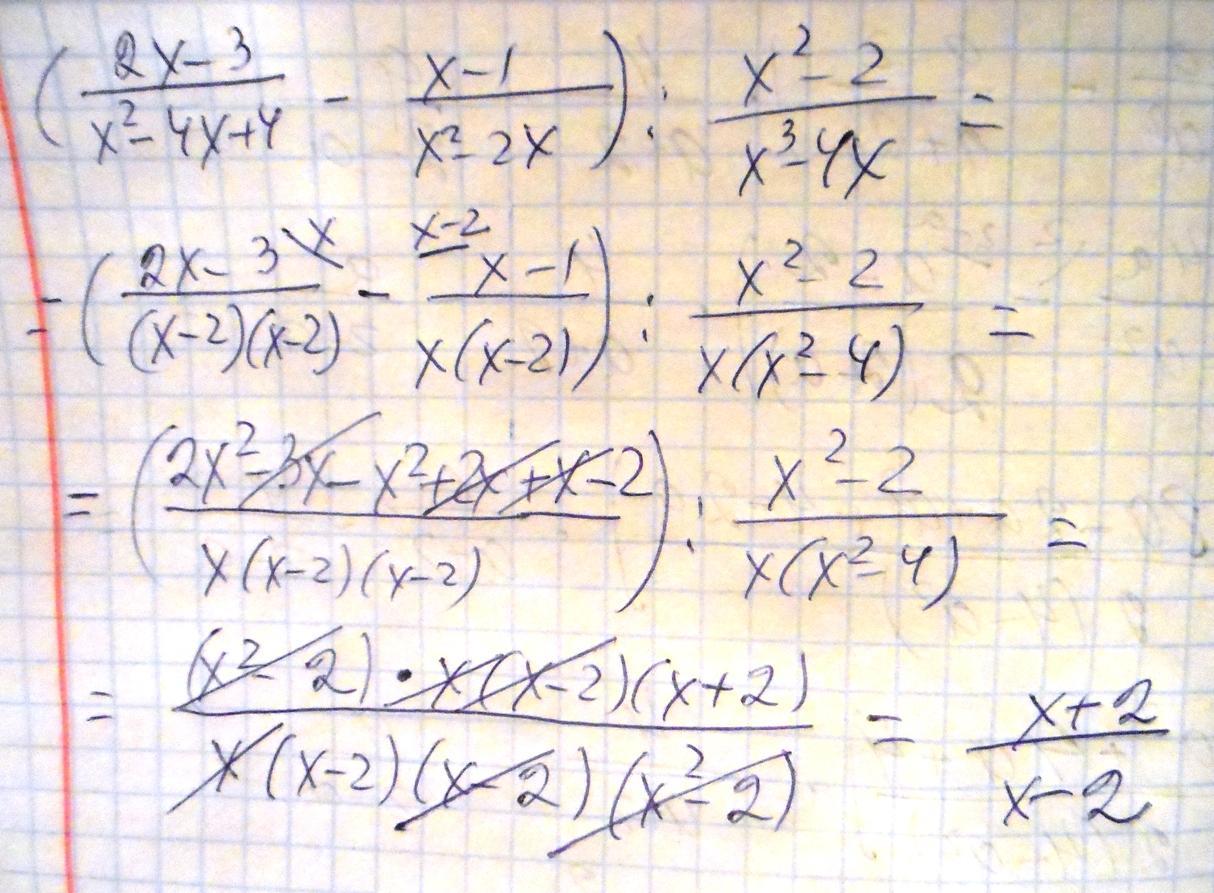 (\frac{2x-3}{x^2-4x+4} - \frac{x-1}{x^2-2x}) : \frac{x^2-2}{x^3-4x} =
= (\frac{2x-3}{(x-2)(x-2)}^{\backslash x} - ^{x-2/}\frac{x-1}{x(x-2)}) : \frac{x^2-2}{x(x^2-4)} =
= (\frac{2x^2-3x-x^2+2x+x-2}{x(x-2)(x-2)}) : \frac{x^2-2}{x(x^2-4)} =
= \frac{(x^2-2) \cdot x(x-2)(x+2)}{x(x-2)(x-2)(x^2-2)} = \frac{x+2}{x-2}